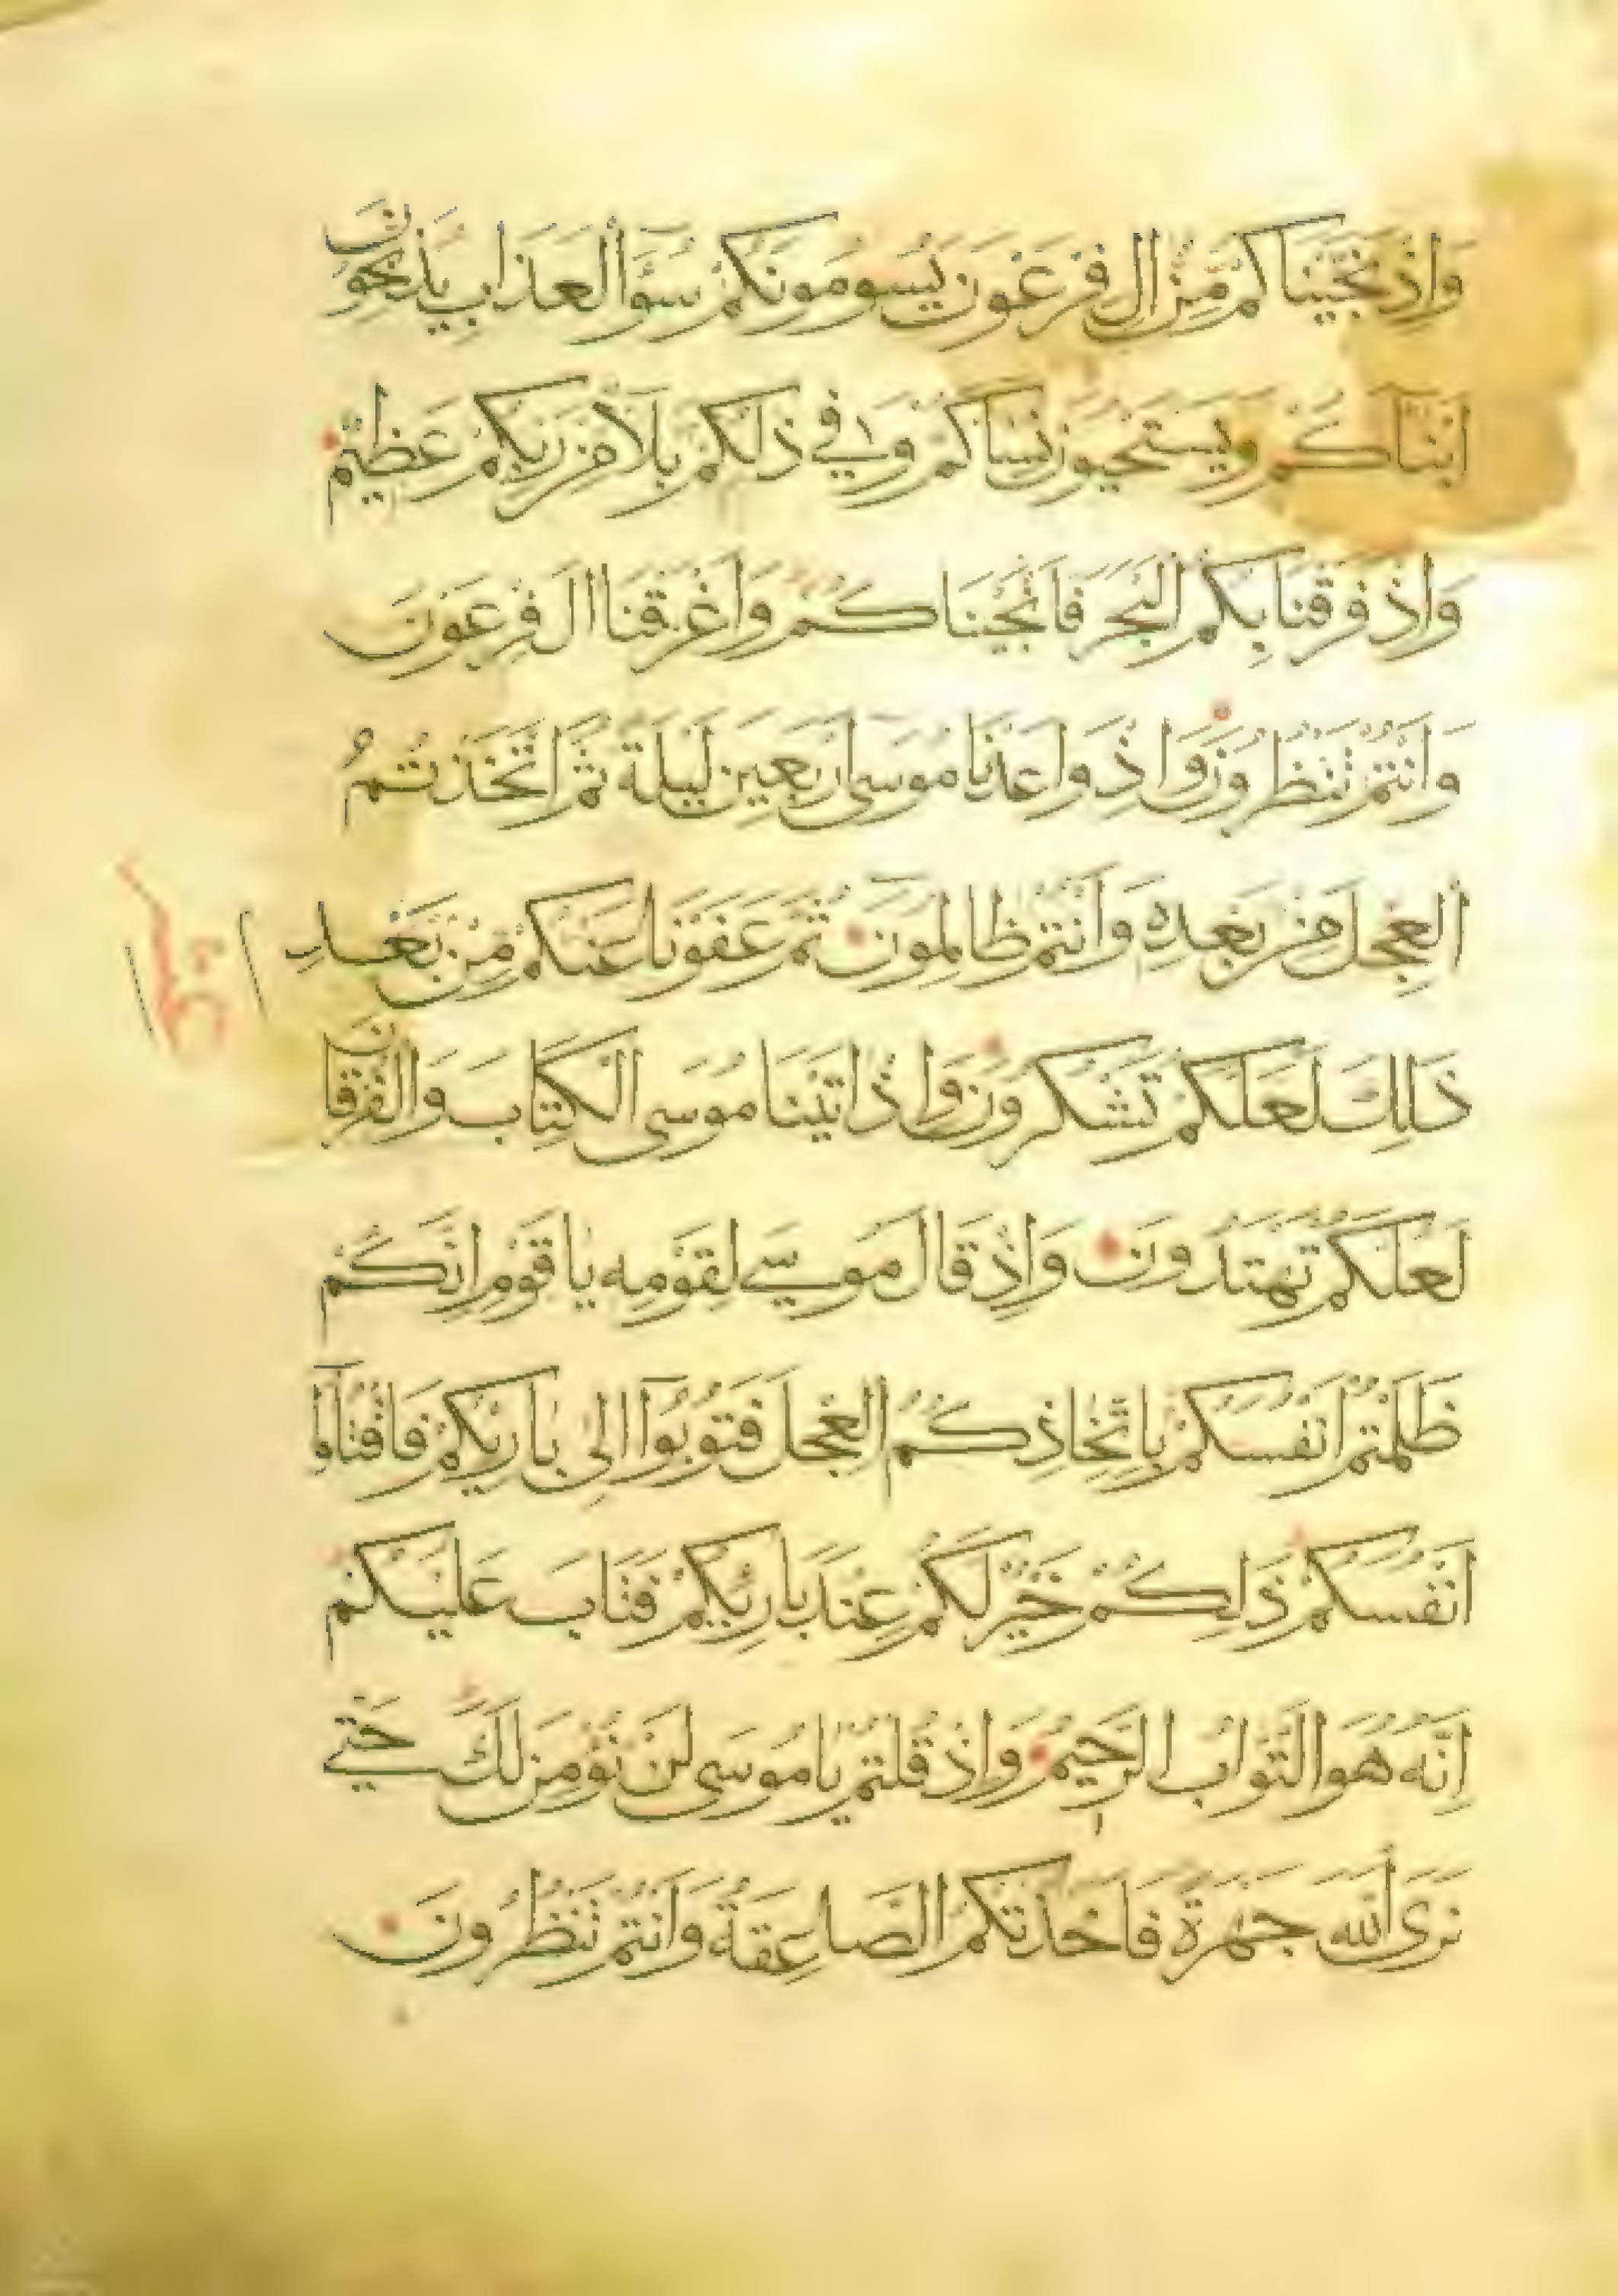 وَاِذْ نَجَّيْنَاكُمْ مِّنْ اٰلِ فِرْعَوْنَ يَسُومُونَكُمْ سُوٓءَ الْعَذَابِ يُذَبِّحُونَ
اَبْنَآكُمْ وَيَسْتَحْيُونَ نِسَآكُمْ وَفِي ذٰلِكُمْ بَلَآءٌ مِنْ رَبِّكُمْ عَظِيْمٌ
وَاِذْ فَرَقْنَا بِكُمُ الْبَحْرَ فَاَنْجَيْنَاكُمْ وَاَغْرَقْنَا اٰلَ فِرْعَوْنَ
وَاَنْتُمْ تَنْظُرُونَ وَاِذْ وَاعَدْنَا مُوسٰى اَرْبَعِينَ لَيْلَةً ثُمَّ اتَّخَذْتُمُ
الْعِجْلَ مِنْ بَعْدِهِ وَاَنْتُمْ ظَالِمُونَ ثُمَّ عَفَوْنَا عَنْكُمْ مِنْ بَعْدِ
ذَلِكَ لَعَلَّكُمْ تَشْكُرُونَ وَاِذْ اٰتَيْنَا مُوسَى الْكِتَابَ وَالْفُرْقَانَ
لَعَلَّكُمْ تَهْتَدُونَ وَاِذْ قَالَ مُوسٰى لِقَوْمِهِ يَا قَوْمِ اِنَّكُمْ
ظَلَمْتُمْ اَنْفُسَكُمْ بِاتِّخَاذِكُمُ الْعِجْلَ فَتُوبُوآ اِلٰى بَارِئِكُمْ فَاقْتُلُوآ
اَنْفُسَكُمْ ذَلِكُمْ خَيْرٌ لَكُمْ عِنْدَ بَارِئِكُمْ فَتَابَ عَلَيْكُمْ
اِنَّهُ هُوَ التَّوَّابُ الرَّحِيمُ وَاِذْ قُلْتُمْ يَا مُوسَى لَنْ نُؤْمِنَ لَكَ حَتّٰى
نَرَى اللّٰهَ جَهْرَةً فَاَخَذَتْكُمُ الصَّاعِقَةُ وَاَنْتُمْ تَنْظُرُونَ